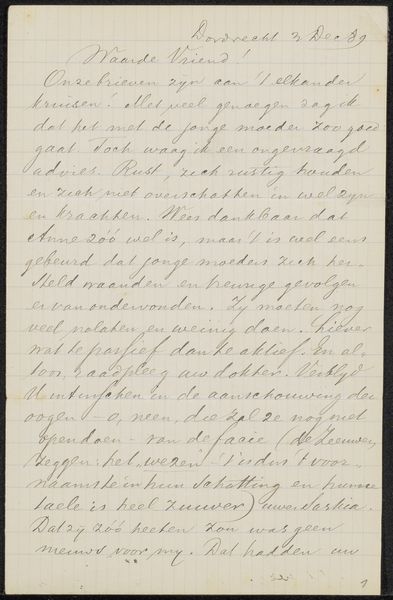 Dordrecht 2 Dec 89
Waarde Vriend!
Onze brieven zijn aan 't elkander
kruisen! Met veel genoegen zag ik
dat het met de jonge moeder zoo goed
gaat. Toch waag ik een ongevraagd
advies. Rust, zich rustig houden
en zich niet overschatten in wel zyn
en krachten. Wees dankbaar dat
Anne zóó wel is, maar 't is wel eens
gebeurd dat jonge moeders zich her-
steld waanden en treurige gevolgen
er van ondervonden. Zij moeten nog
veel nalaten, en weinig doen. Liever
wat te passief dan te aktief. En al-
voor, raadpleeg uw dokter. Verblyd
U intusschen in de aanschouwing der
oogen – o, neen, die zal ze nog niet
opendoen – van de facie (de Zeeuwen
zeggen: het "wezen" 't is dus 't voor-
naamste in hun schatting en hunne
taele is heel zuwer) uwer Saskia.
Dat zij zóó heeten zou was geen
nieuws voor my. Dat hadden uw
1